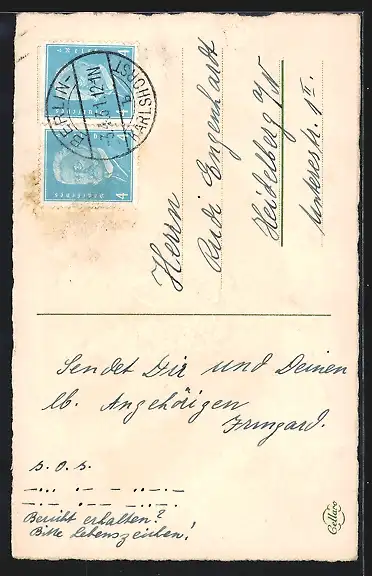 BERLIN-
KARLSHORST
Deutsches Reich
4
Deutsches Reich
4
Herrn
Rudi Engenhardt
Heidelberg a/N
Unterestr. 1 II.
Sendet Dir und Deinen
lb. Angehörigen
Irmgard.
s. o. s.
Bericht erhalten?
Bitte Lebenszeichen!
Cellaro